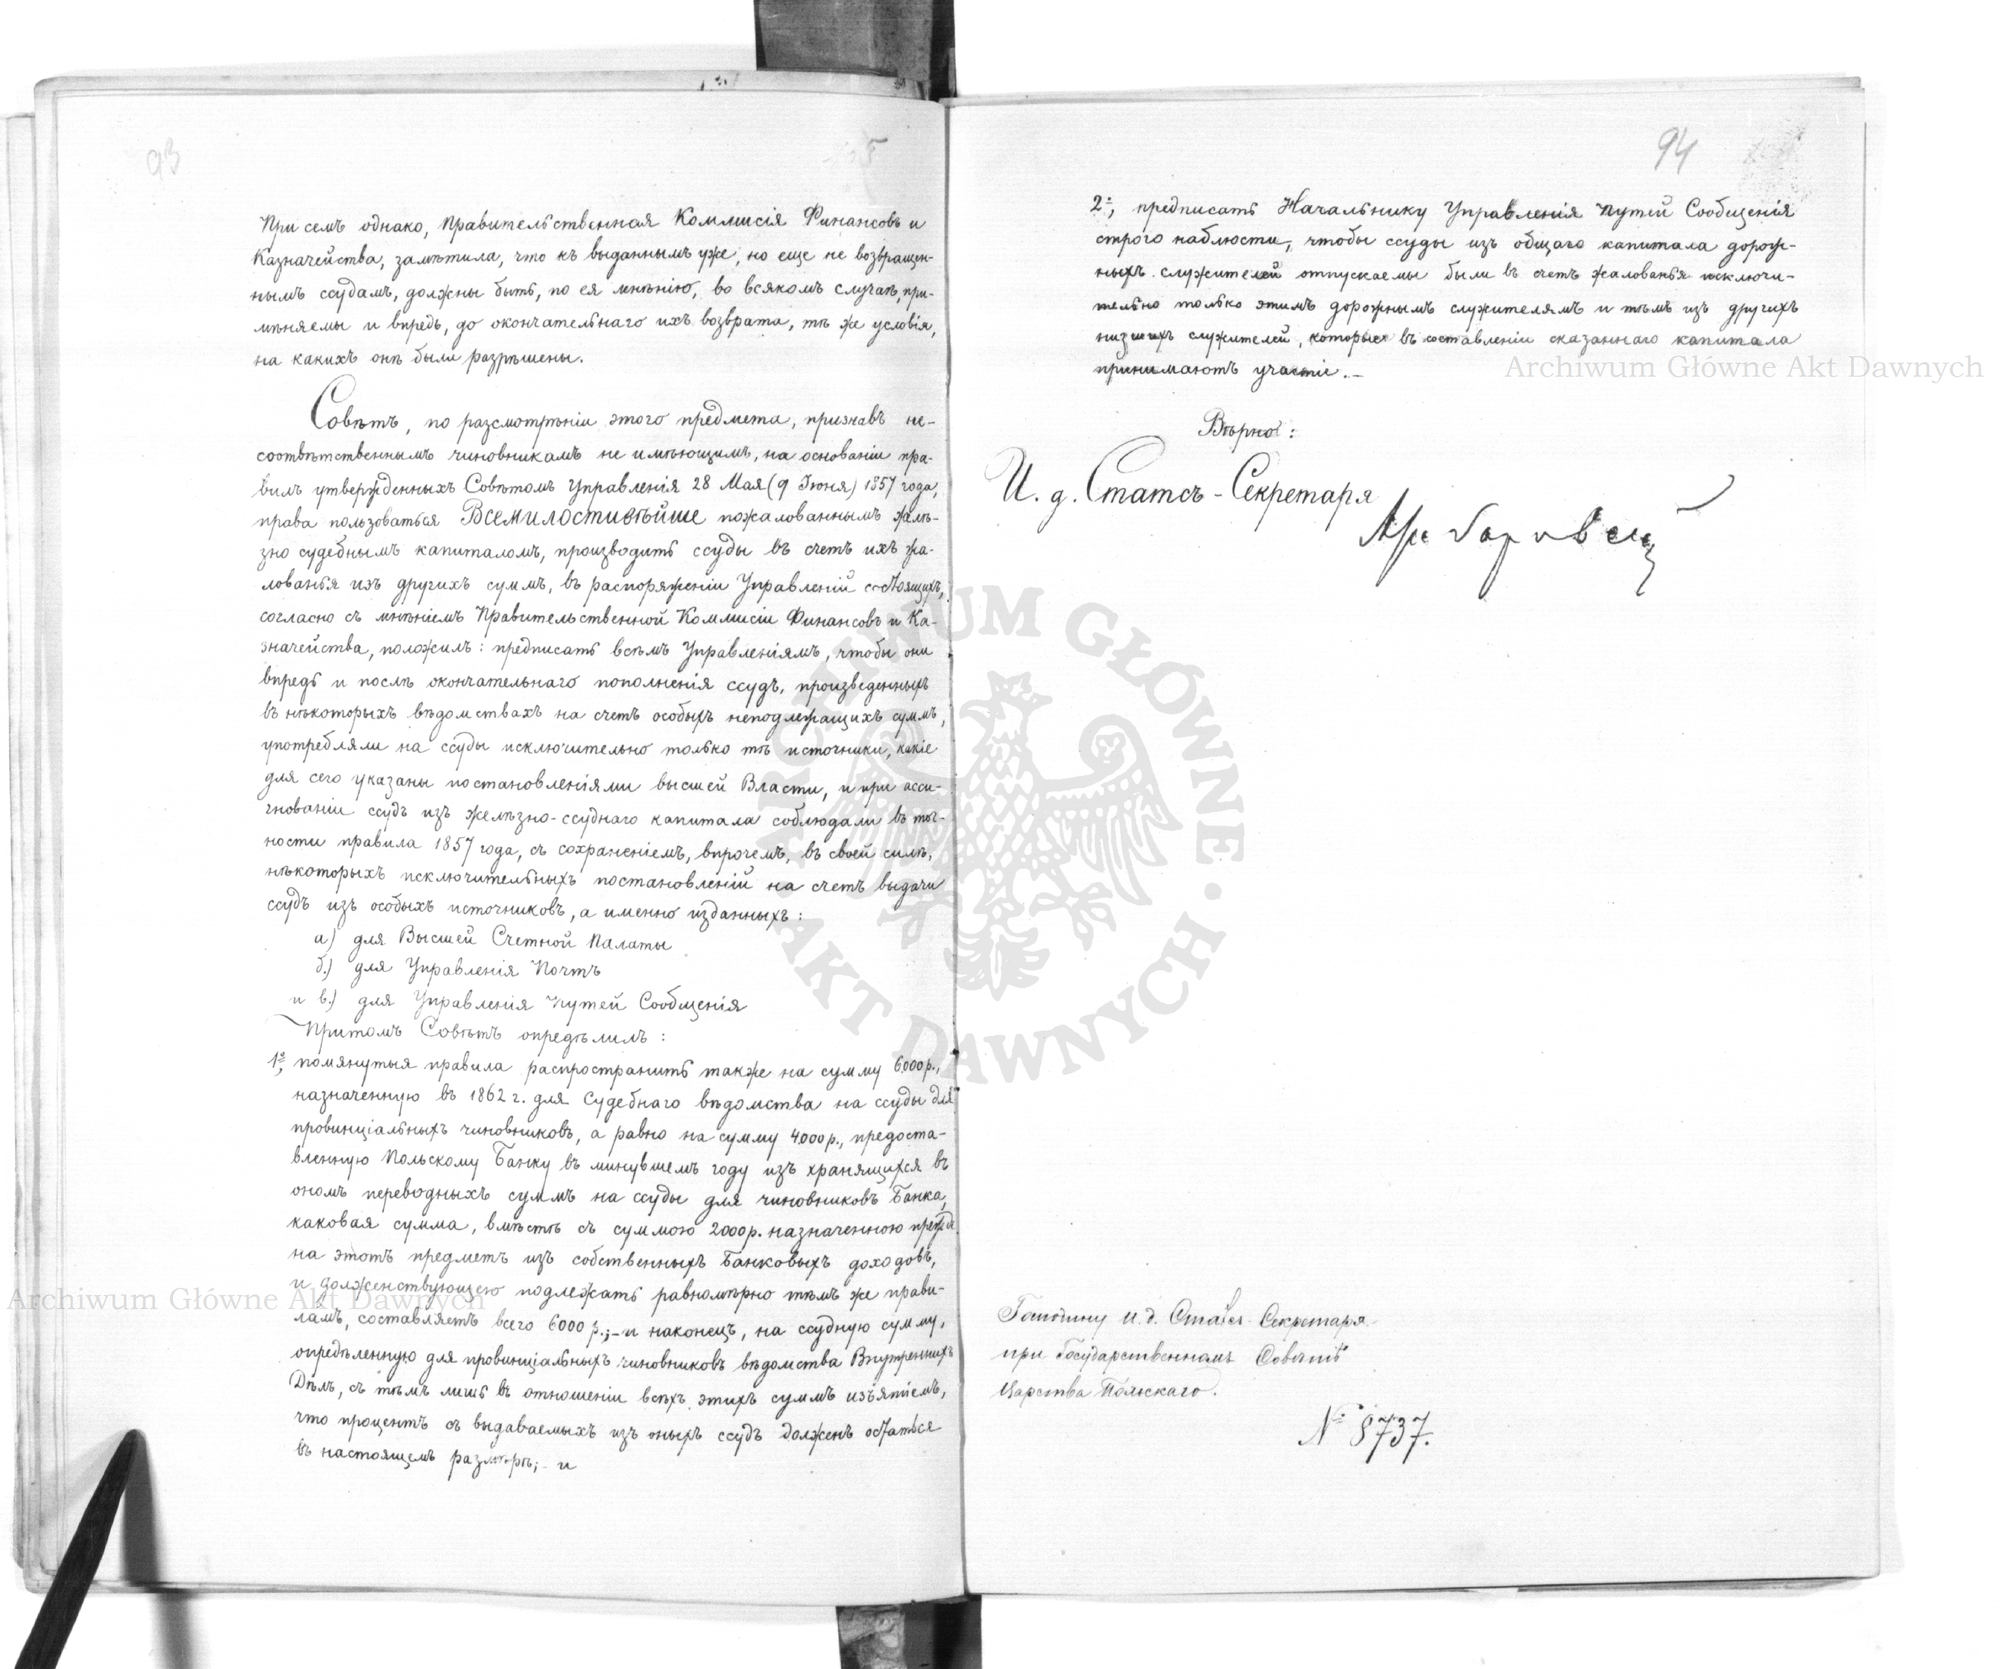 93
При семъ однако, Правительственная Коммисія Финансовъ и
Казначейства, замѣтила, что къ выданнымъ уже, но еще не возвращен-
нымъ ссудамъ, должны быть, по ея мнѣнію, во всякомъ случаѣ, при-
мѣняемы и впредь, до окончательнаго ихъ возврата, тѣ же условія,
на какихъ онѣ были разрѣшены.
Совѣтъ, по разсмотрѣніи этого предмета, признавъ не-
соотвѣтственнымъ чиновникамъ не имѣющимъ, на основаніи пра-
вилъ утвержденныхъ Совѣтомъ Управленія 28 Мая (9 Іюня) 1857 года,
права пользоваться Всемилостивѣйше пожалованнымъ желѣ-
зно судебнымъ капиталомъ, производить ссуды въ счетъ ихъ жа-
лованья изъ другихъ суммъ, въ распоряженіи Управленій состоящихъ,
согласно съ мнѣніемъ Правительственной Коммисіи Финансовъ и Ка-
значейства, положилъ: предписать всѣмъ Управленіямъ, чтобы они
впредь и послѣ окончательнаго пополненія ссудъ, произведенныхъ
въ нѣкоторыхъ вѣдомствахъ на счетъ особыхъ неподлежащихъ суммъ,
употребляли на ссуды исключительно только тѣ источники, какіе
для сего указаны постановленіями высшей Власти, и при асси-
гнованіи ссудъ изъ желѣзно-ссуднаго капитала соблюдали въ точ-
ности правила 1857 года, съ сохраненіемъ, впрочемъ, въ своей силѣ,
нѣкоторыхъ исключительныхъ постановленій на счетъ выдачи
ссудъ изъ особыхъ источниковъ, а именно изданныхъ:
а) для Высшей Счетной Палаты
б.) для Управленія Почтъ
и в.) для Управленія Путей Сообщенія
Притомъ Совѣтъ опредѣлилъ:
1º, помянутыя правила распространить также на сумму 6000 р.,
назначенную въ 1862 г. для Судебнаго вѣдомства на ссуды для
провинціальныхъ чиновниковъ, а равно на сумму 4000 р., предоста-
вленную Польскому Банку въ минувшемъ году изъ хранящихся въ
ономъ переводныхъ суммъ на ссуды для чиновниковъ Банка,
каковая сумма, вмѣстѣ съ суммою 2000 р. назначенною прежде
на этотъ предметъ изъ собственныхъ Банковыхъ доходовъ,
и долженствующею подлежать равномѣрно тѣмъ же прави-
ламъ, составляетъ всего 6000 р.;- и наконецъ, на ссудную сумму,
опредѣленную для провинціальныхъ чиновниковъ вѣдомства Внутреннихъ
Дѣлъ, съ тѣмъ лишь въ отношеніи всѣхъ этихъ суммъ изъятіемъ,
что процентъ съ выдаваемыхъ изъ оныхъ ссудъ долженъ остаться
въ настоящемъ размѣрѣ;- и
94
2º, предписать Начальнику Управленія Путей Сообщенія
строго наблюсти, чтобы ссуды изъ общаго капитала дорож-
ныхъ служителей отпускаемы были въ счетъ жалованья исключи-
тельно только этимъ дорожнымъ служителямъ и тѣмъ изъ другихъ
низшихъ служителей, которые въ составленіи сказаннаго капитала
принимаютъ участіе.-
Вѣрно:
И. д. Статсъ-Секретаря
Господину И. д. Статсъ-Секретаря
при Государственномъ Совѣтѣ
Царства Польскаго.
№ 8737.
Archiwum Główne Akt Dawnych
Archiwum Główne Akt Dawnych
ARCHIWUM GŁÓWNE · AKT DAWNYCH ·